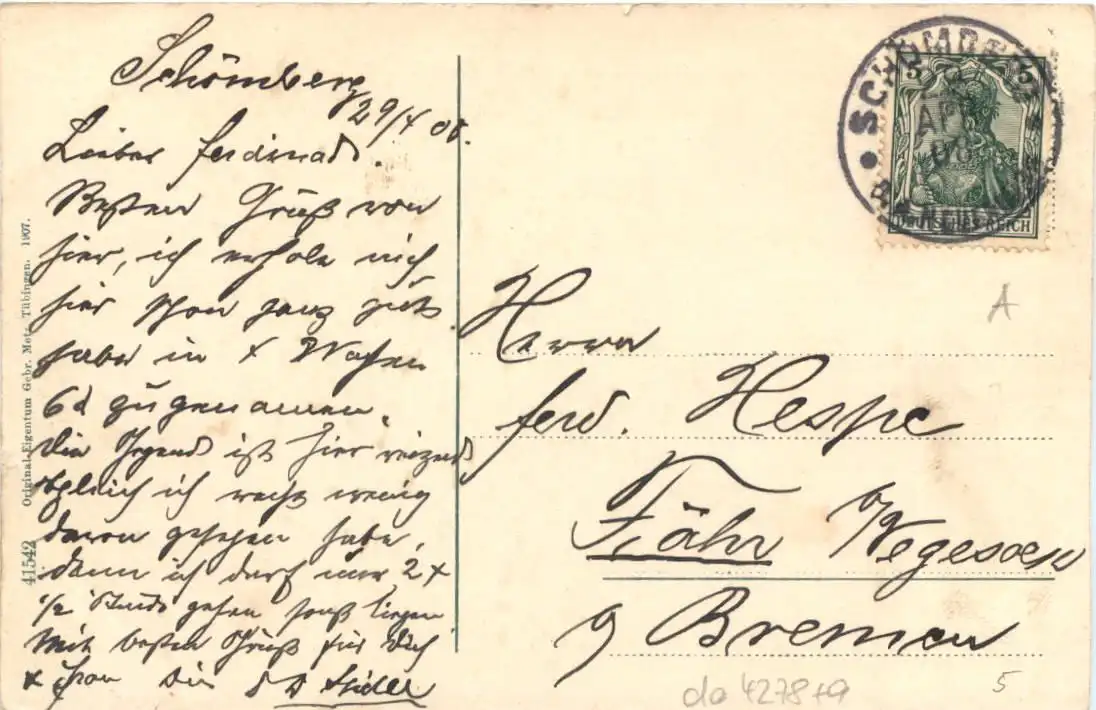 Schömberg
29/4 08.
Lieber Ferdinand.
Besten Gruß von
hier, ich erhole mich
hier schon ganz gut.
habe in 4 Wochen
6 zugenommen.
Die Gegend ist hier reizend
obgleich ich recht wenig
davon gesehen habe,
denn ich darf nur 2 x
1/2 Stunde gehen sonst liegen
Mit besten Gruß für Dich
Frau Dein
Original-Eigentum Gebr. Metz, Tübingen. 1907.
41542
SCHÖMBERG
APR
08
NEUENBÜRG
5 5
DEUTSCHES REICH
A
Herrn
Ferd. Hespe
Fähr b/Vegesack
Bremen
da 4278+9
5